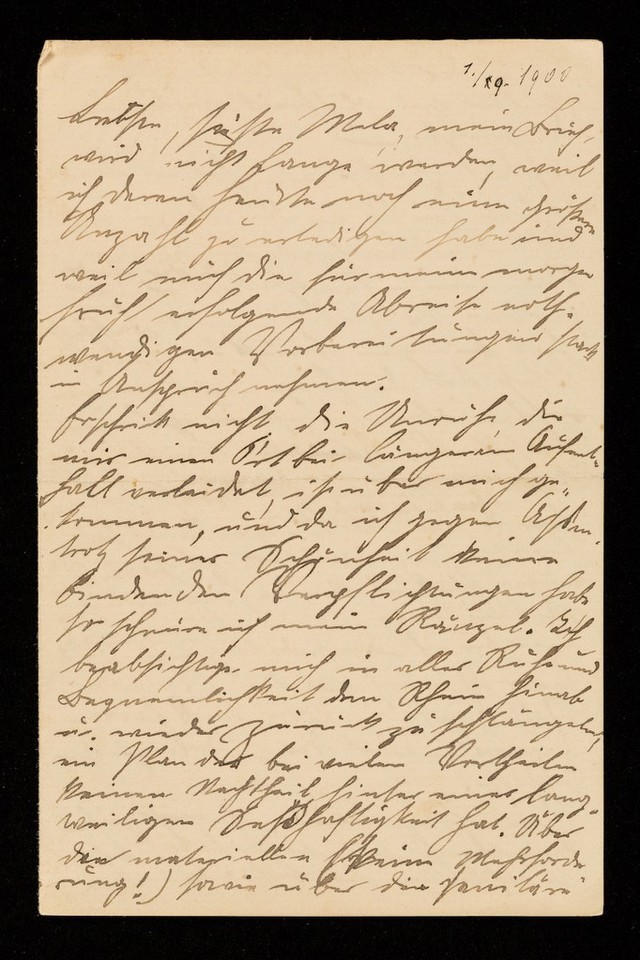 1./X9. 1900
Liebste, süßste Mela, mein Brief
wird nicht lange werden, weil
ich deren heute noch eine größere
Anzahl zu erledigen habe und
weil mich die für meine morgen
früh erfolgende Abreise noth-
wendigen Vorbereitungen stark
in Anspruch nehmen.
Erschrick nicht, die Unruhe, die
mir einen Ort bei längerem Aufent-
halt verleidet, ist über mich ge-
kommen, und da ich gegen
trotz seiner Schönheit keine
bindenden Verpflichtungen habe
so schnüre ich mein Ränzel. Ich
beabsichtige mich in aller Ruhe und
Bequemlichkeit den Rhein hinab
u. wieder zurück zu schlängeln,
ein Plan der bei vielen Vortheilen
keinen Nachtheil hinter einer lang-
weiligen Seßhaftigkeit hat. Über
die materiellen (keine Mehrforde-
rung!) sowie über die sanitäre